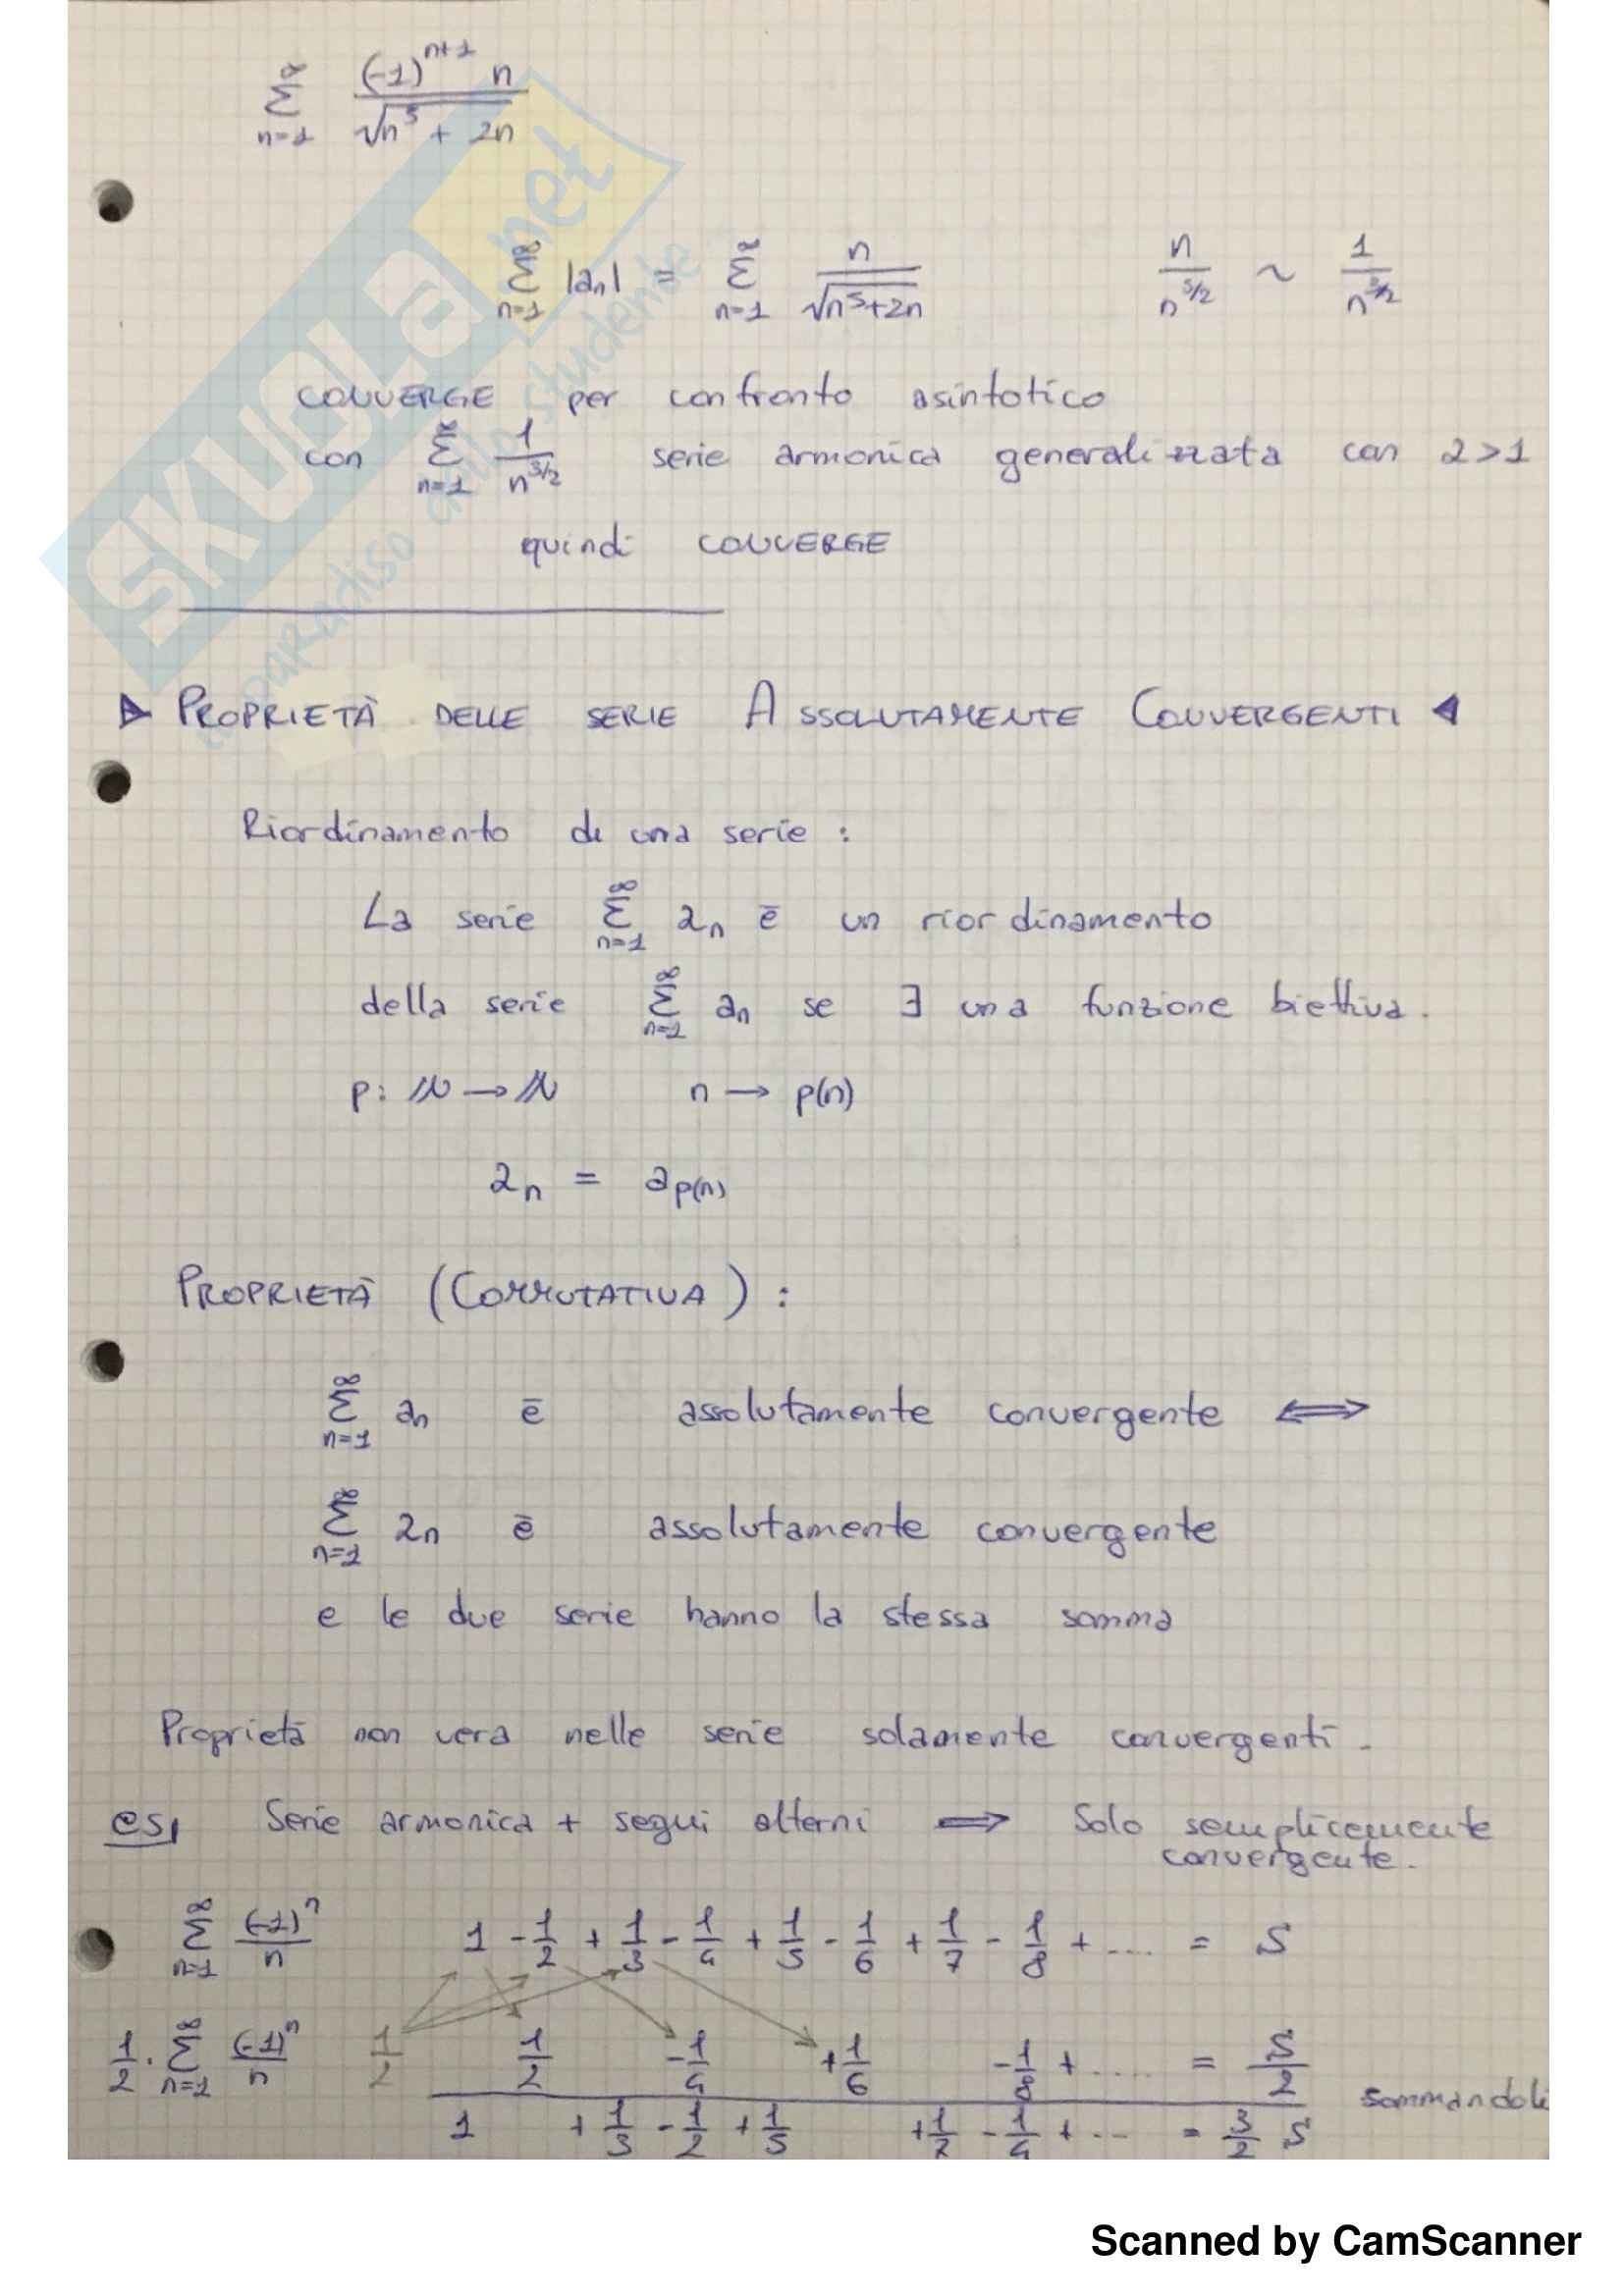 ∑_{n=1}^{∞} (-1)^{n+1} n / √(n^5 + 2n)
∑_{n=1}^{∞} |an| = ∑_{n=1}^{∞} n / √(n^5+2n)    n / n^{5/2} ~ 1 / n^{3/2}
CONVERGE per confronto asintotico
con ∑_{n=1}^{∞} 1 / n^{3/2} serie armonica generalizzata con 2>1
quindi CONVERGE
SKUOLA.net
paradiso dello studente
▶ PROPRIETÀ DELLE SERIE ASSOLUTAMENTE CONVERGENTI ◀
Riordinamento di una serie :
La serie ∑_{n=1}^{∞} 2n è un riordinamento
della serie ∑_{n=1}^{∞} an se ∃ una funzione biettiva.
p: N → N    n → p(n)
2n = a_{p(n)}
PROPRIETÀ (COMMUTATIVA) :
∑_{n=1}^{∞} an è assolutamente convergente ⟺
∑_{n=1}^{∞} 2n è assolutamente convergente
e le due serie hanno la stessa somma
Proprietà non vera nelle serie solamente convergenti.
es, Serie armonica + segni alterni ⟹ Solo semplicemente
convergente.
∑_{n=1}^{∞} (-1)^n / n    1 - 1/2 + 1/3 - 1/4 + 1/5 - 1/6 + 1/7 - 1/8 + .... = S
1/2 · ∑_{n=1}^{∞} (-1)^n / n    1/2    1/2    - 1/4    + 1/6    - 1/8 + .... = S/2
1 + 1/3 - 1/2 + 1/5 + 1/7 - 1/4 + ... = 3/2 S    sommandoli
Scanned by CamScanner